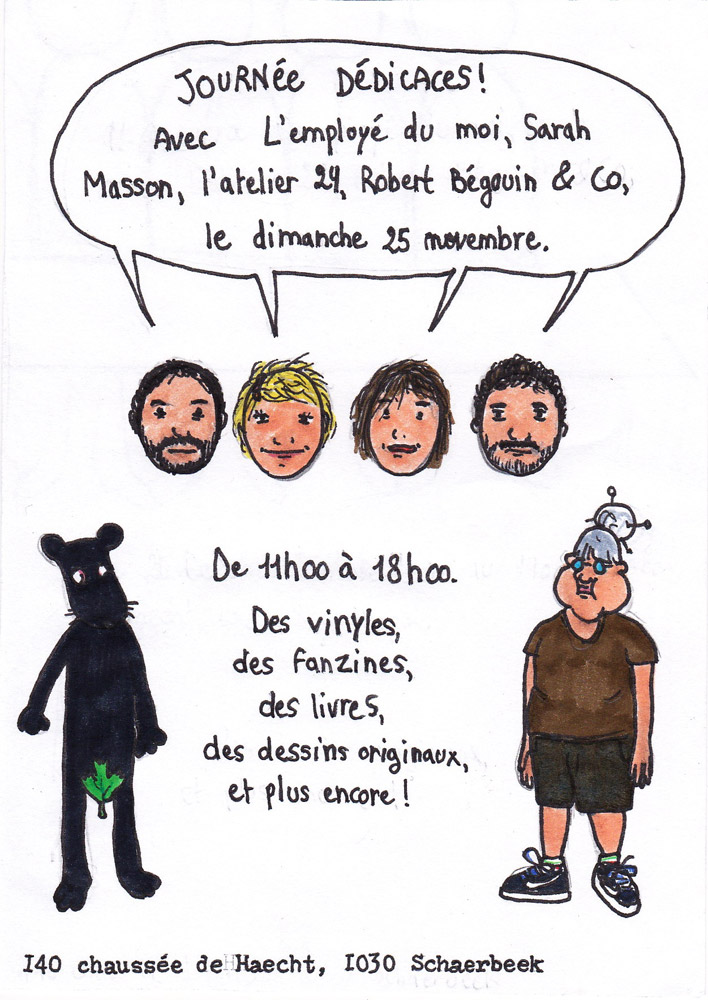 JOURNÉE DÉDICACES!
Avec L'employé du moi, Sarah
Masson, l'atelier 24, Robert Bégouin & Co,
le dimanche 25 novembre.
De 11hoo à 18hoo.
Des vinyles,
des fanzines,
des livres,
des dessins originaux,
et plus encore !
I40 chaussée de Haecht, I030 Schaerbeek